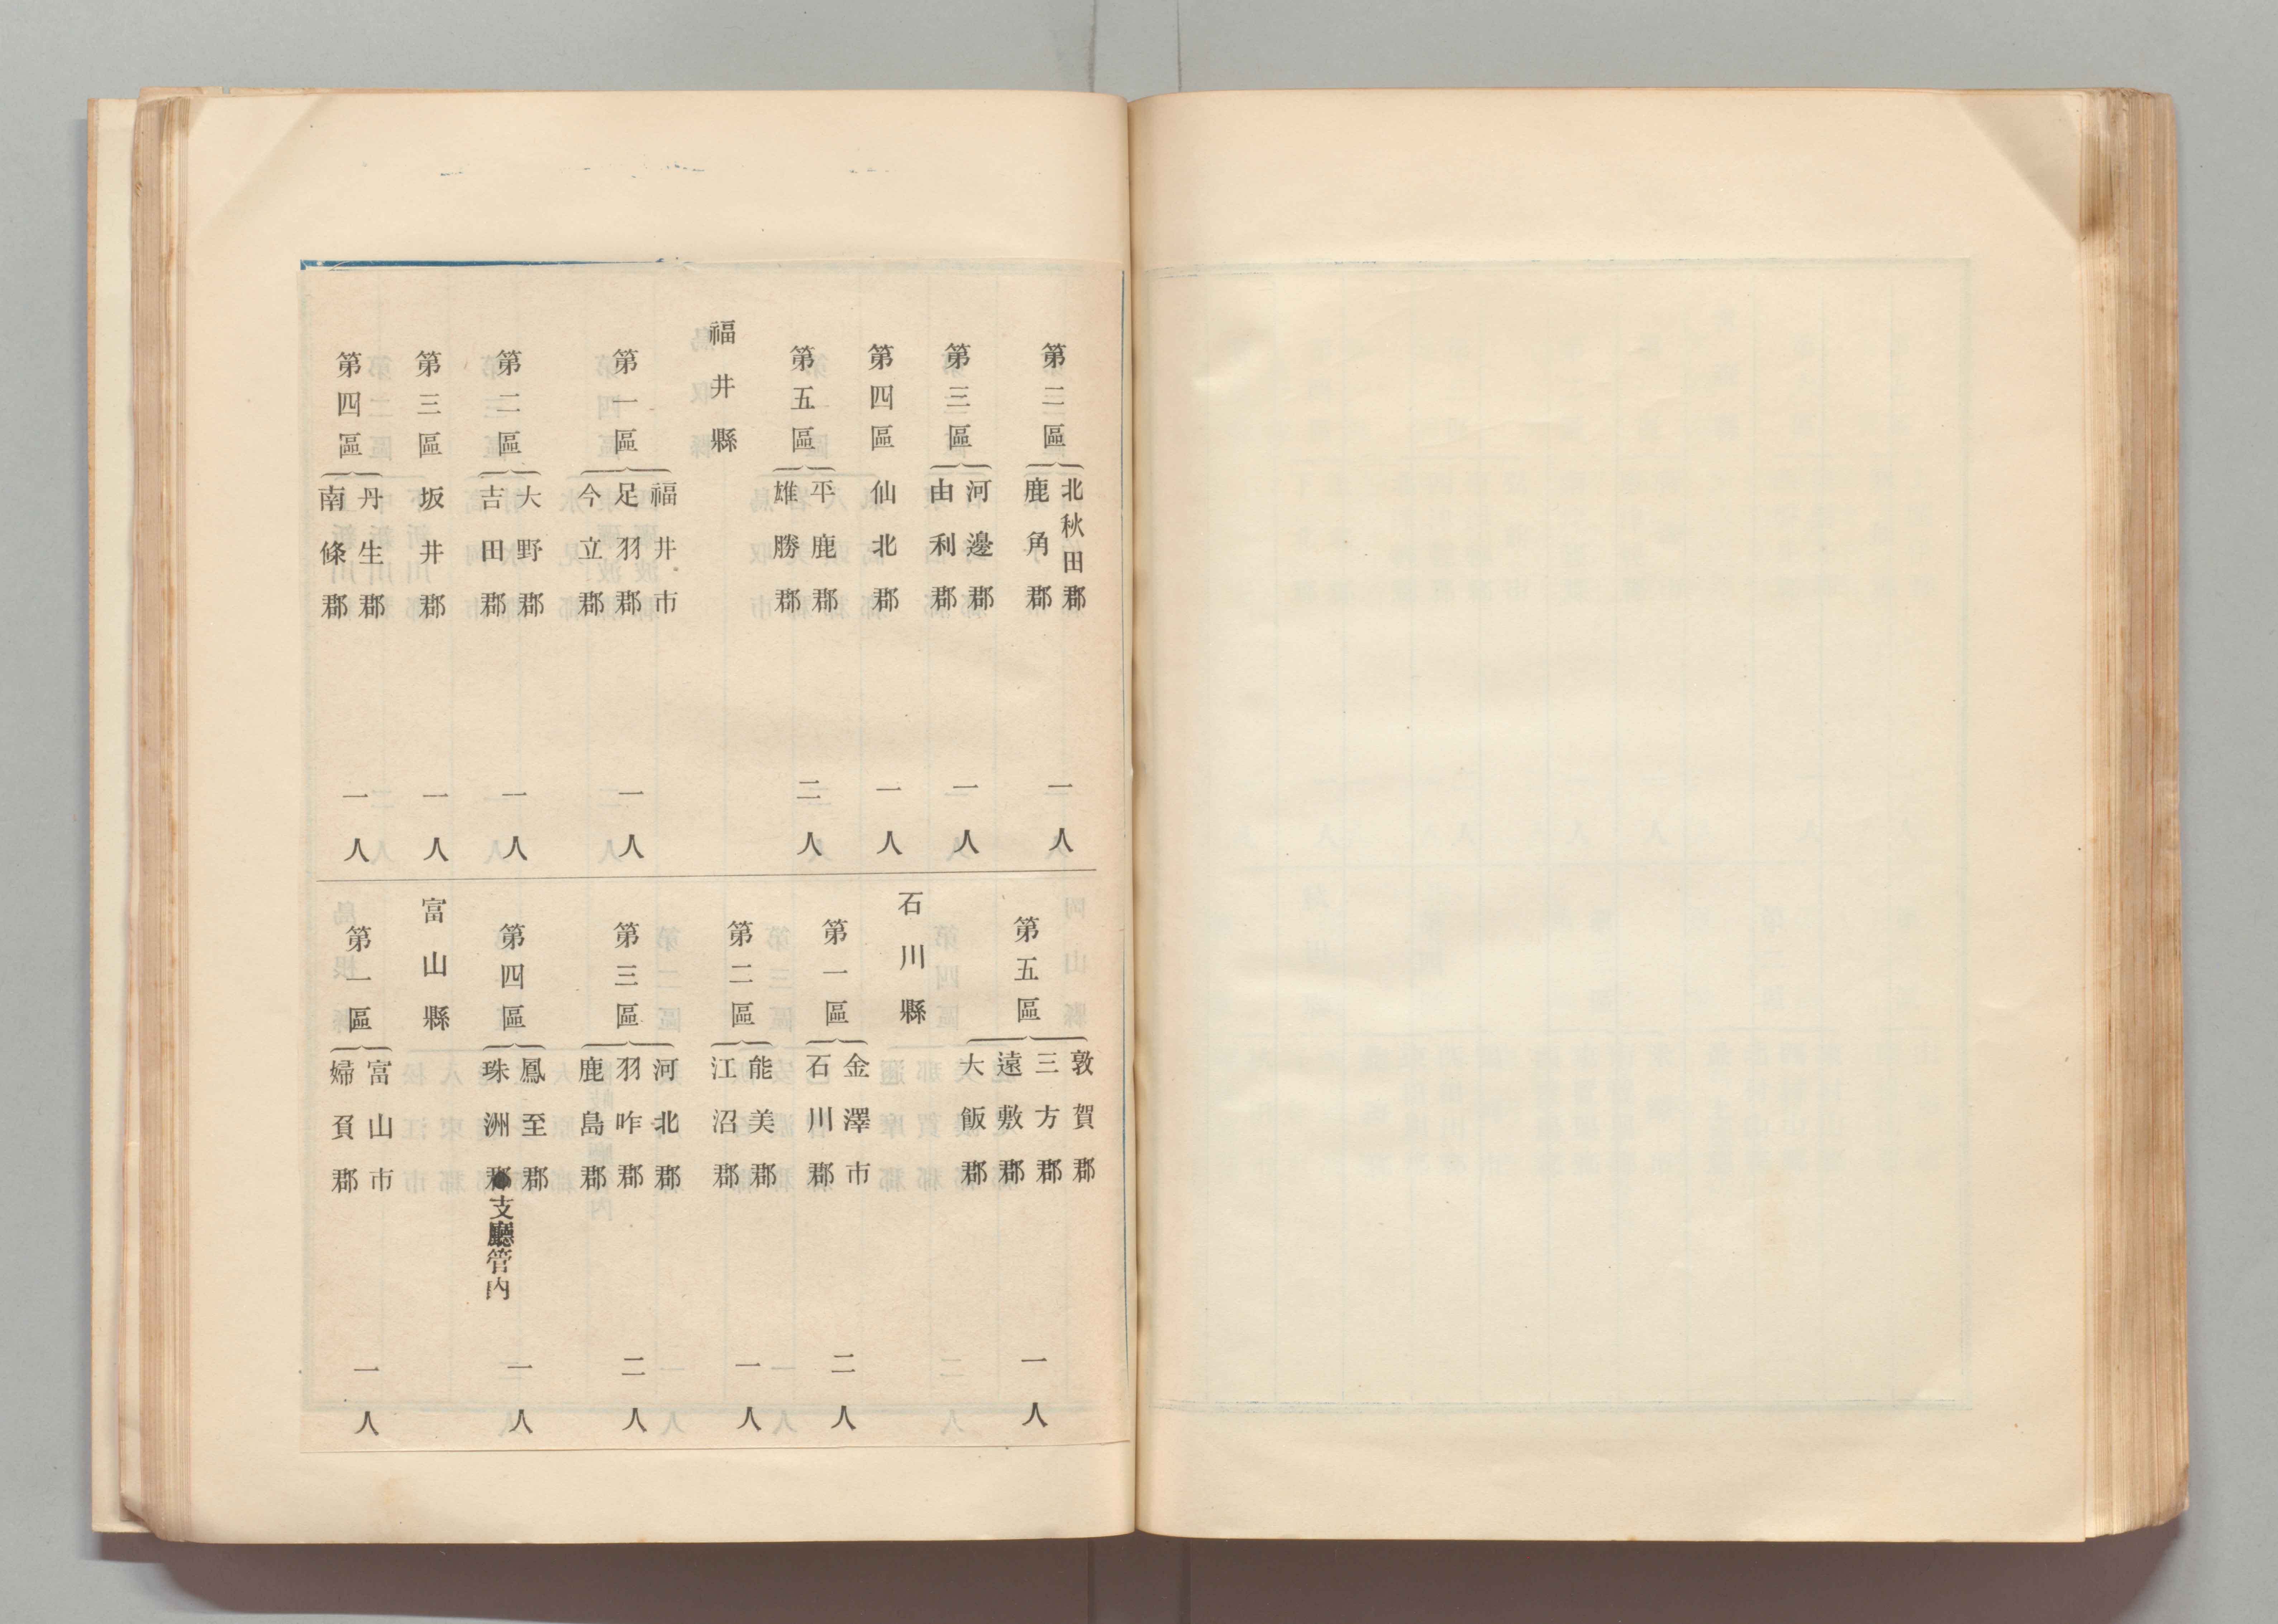 第二區
北秋田郡
鹿角郡
一人
第三區
河邊郡
由利郡
一人
第四區
仙北郡
一人
第五區
平鹿郡
雄勝郡
二人
福井縣
第一區
福井市
足羽郡
今立郡
一人
第二區
大野郡
吉田郡
一人
第三區
坂井郡
一人
第四區
丹生郡
南條郡
一人
第五區
敦賀郡
三方郡
遠敷郡
大飯郡
一人
石川縣
第一區
金澤市
石川郡
二人
第二區
能美郡
江沼郡
一人
第三區
河北郡
羽咋郡
鹿島郡
二人
第四區
鳳至郡
珠洲郡支廳管内
一人
富山縣
第一區
富山市
婦負郡
一人